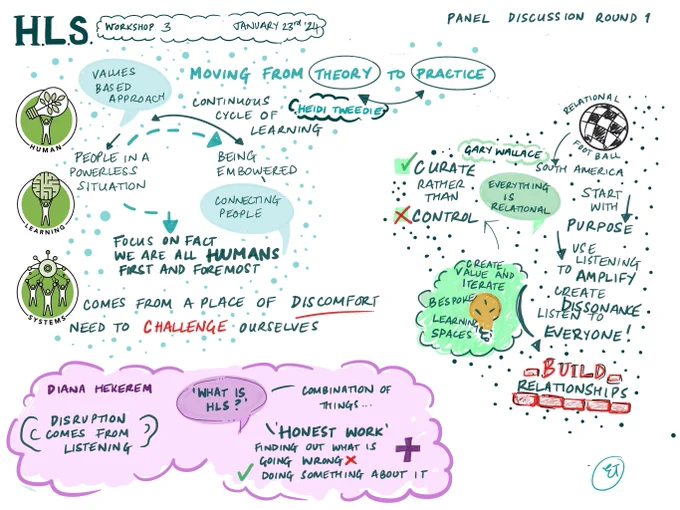 H.L.S.
WORKSHOP 3
JANUARY 23rd '24
PANEL DISCUSSION ROUND 1
MOVING FROM THEORY TO PRACTICE
VALUES
BASED
APPROACH
CONTINUOUS
CYCLE OF
LEARNING
HEIDI TWEEDIE
HUMAN
PEOPLE IN A
POWERLESS
SITUATION
BEING
EMPOWERED
CONNECTING
PEOPLE
LEARNING
FOCUS ON FACT
WE ARE ALL HUMANS
FIRST AND FOREMOST
SYSTEMS
COMES FROM A PLACE OF DISCOMFORT
NEED TO CHALLENGE OURSELVES
RELATIONAL
FOOTBALL
GARY WALLACE
SOUTH AMERICA
CURATE
RATHER
THAN
CONTROL
EVERYTHING
IS
RELATIONAL
START
WITH
PURPOSE
USE
LISTENING
TO AMPLIFY
CREATE
DISSONANCE
LISTEN TO
EVERYONE!
CREATE
VALUE AND
ITERATE
BESPOKE
LEARNING
SPACES
BUILD
RELATIONSHIPS
DIANA HEKEREM
DISRUPTION
COMES FROM
LISTENING
'WHAT IS
HLS?'
COMBINATION OF
THINGS...
'HONEST WORK'
FINDING OUT WHAT IS
GOING WRONG
DOING SOMETHING ABOUT IT